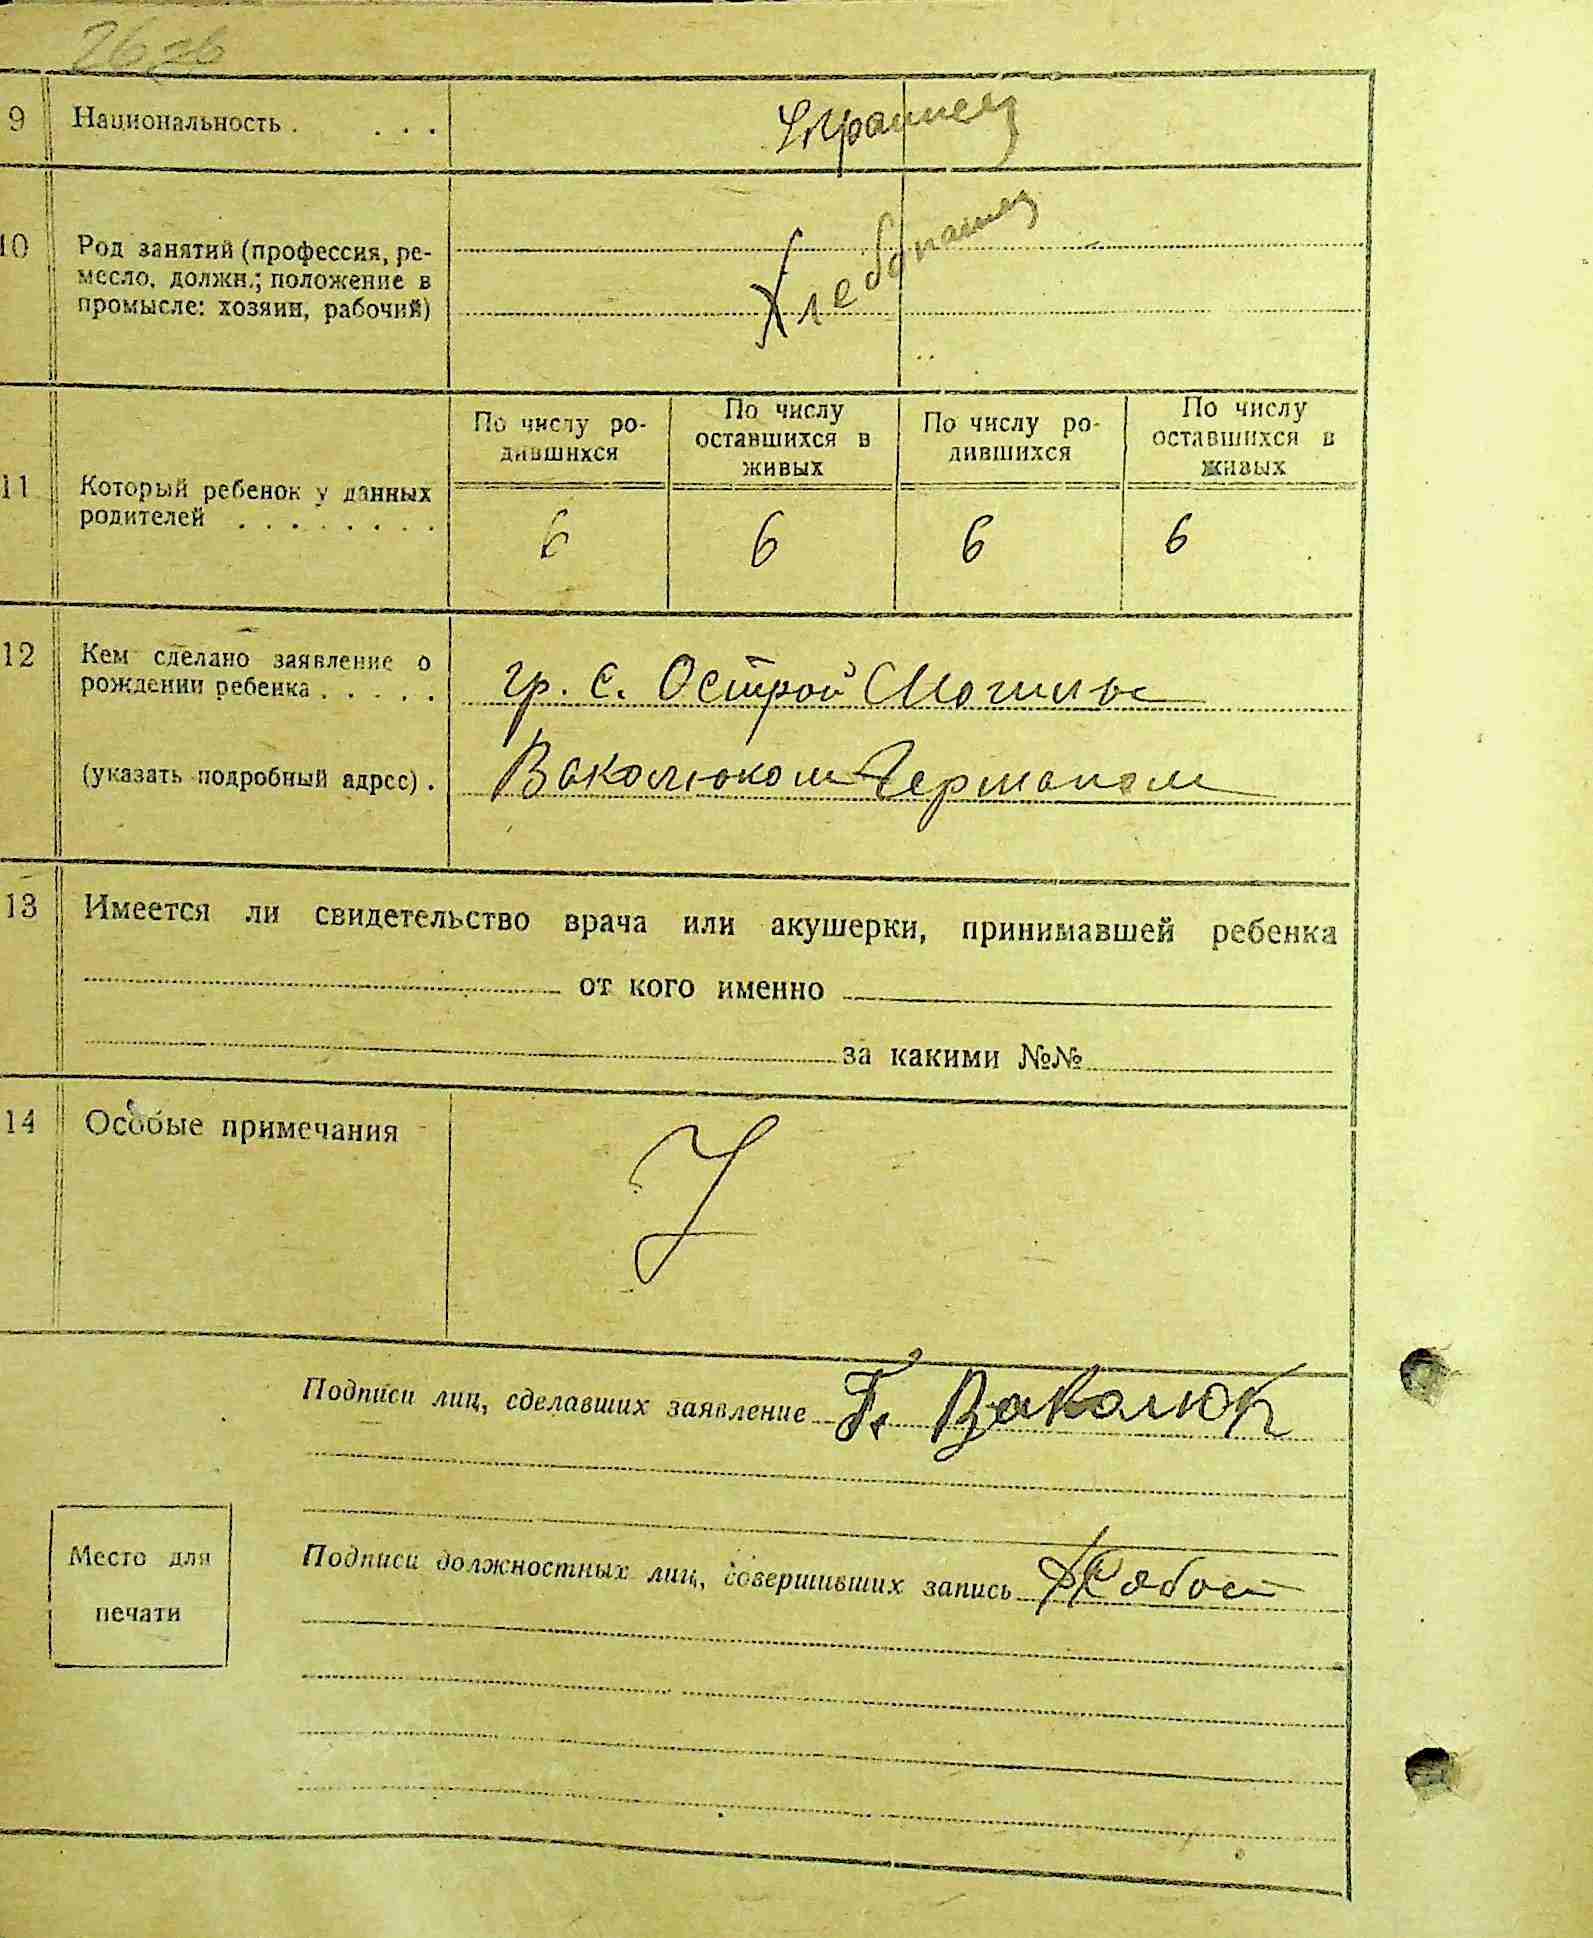 26 об
9 Национальность . . . . Украинец
10 Род занятий (профессия, ре-
месло, должн.; положение в
промысле: хозяин, рабочий)
Хлебопашец
По числу ро-
дившихся
По числу
оставшихся в
живых
По числу ро-
дившихся
По числу
оставшихся в
живых
11 Который ребенок у данных
родителей . . . . . . . .
6 6 6 6
12 Кем сделано заявление о
рождении ребенка . . . . .
гр. с. Острой Могилы
(указать подробный адрес) .
Ваколюком Германом
13 Имеется ли свидетельство врача или акушерки, принимавшей ребенка
от кого именно
за какими №№
14 Особые примечания
Подписи лиц, сделавших заявление Г. Ваколюк
Место для
печати
Подписи должностных лиц, совершивших запись